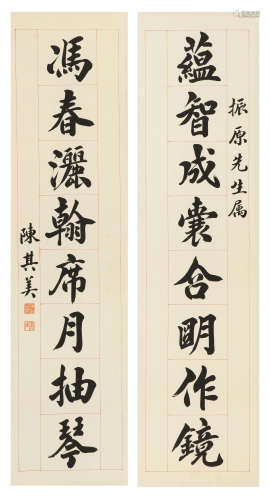 振原先生属
蘊智成囊含明作鏡
馮春灑翰席月抽琴
陳其美